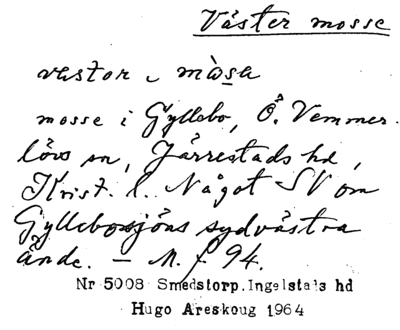 Väster mosse
vestor - màsa
mosse i Gyllebo, Ö. Vemmer-
lövs sn, Järrestads hd,
Krist. l. Något SV om
Gyllebosjöns sydvästra
ände. — M. f. 94.
Nr 5008 Smedstorp.Ingelstads hd
Hugo Areskoug 1964